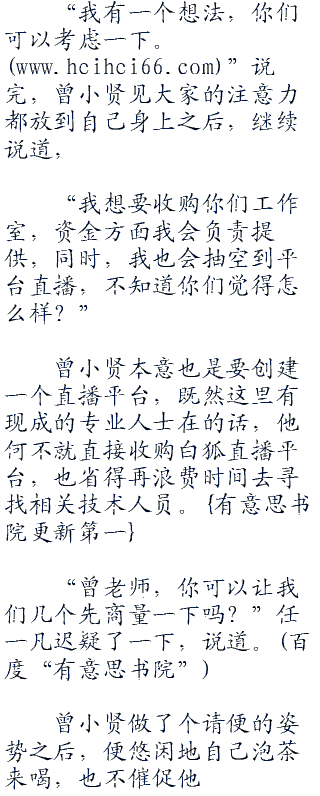 “我有一个想法，你们
可以考虑一下。
(www.hcihci66.com)”说
完，曾小贤见大家的注意力
都放到自己身上之后，继续
说道，
“我想要收购你们工作
室，资金方面我会负责提
供，同时，我也会抽空到平
台直播，不知道你们觉得怎
么样？”
曾小贤本意也是要创建
一个直播平台，既然这里有
现成的专业人士在的话，他
何不就直接收购白狐直播平
台，也省得再浪费时间去寻
找相关技术人员。{有意思书
院更新第一}
“曾老师，你可以让我
们几个先商量一下吗？”任
一凡迟疑了一下，说道。(百
度“有意思书院”)
曾小贤做了个请便的姿
势之后，便悠闲地自己泡茶
来喝，也不催促他